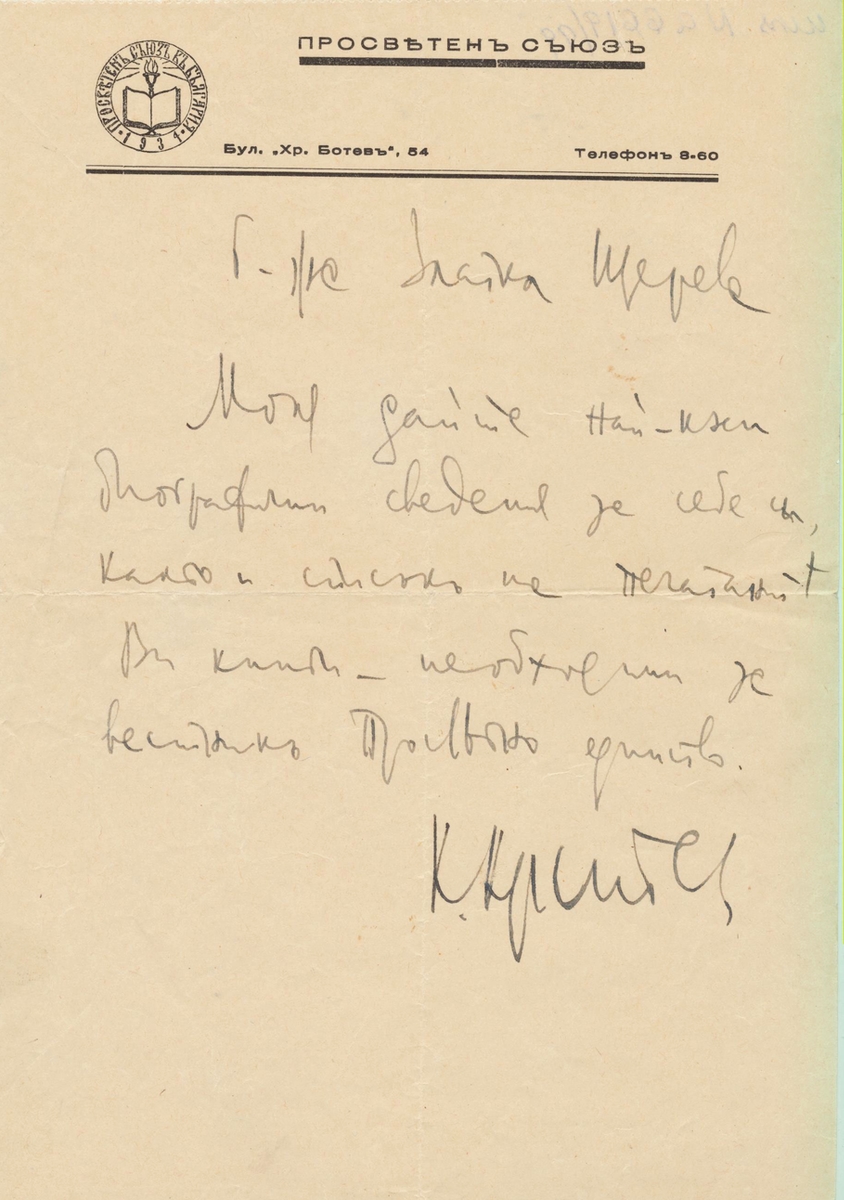 ПРОСВѢТЕНЪ СЪЮЗЪ
ПРОСВѢТЕНЪ СЪЮЗЪ ВЪ БЪЛГАРИЯ
1934
Бул. „Хр. Ботевъ“, 54
Телефонъ 8-60
Г-жа Златка Щерева
Моля дайте най-къси
биографични сведения за себе си,
както и списъкъ на печатанит
Ви книги – необходими за
вестникъ Просвѣтно единство.
К. Кръстев